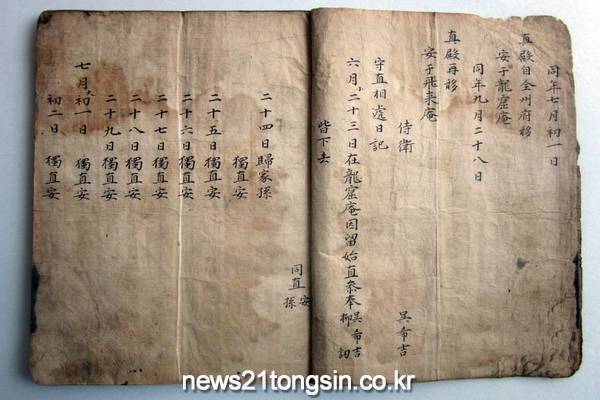 同年七月初一日
真殿自全州府移
安于龍窟庵
同年九月二十八日
真殿再移
安于飛来庵
侍衛 吳希吉
守直相處日記
六月二十三日在龍窟庵因留始直叅奉吳希吉
柳訒
皆下去
同直安
孫
二十四日歸家孫
獨直安
二十五日獨直安
二十六日獨直安
二十七日獨直安
二十八日獨直安
二十九日獨直安
七月初一日 獨直安
初二日 獨直安
news21tongsin.co.kr